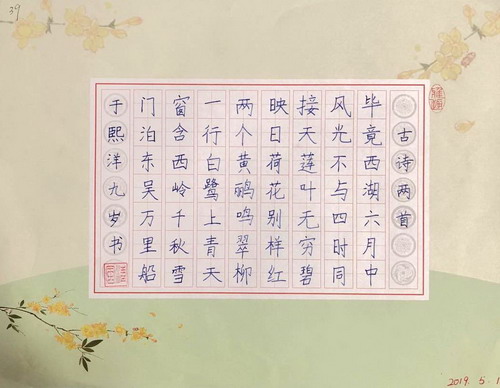 39
古诗两首
毕竟西湖六月中
风光不与四时同
接天莲叶无穷碧
映日荷花别样红
两个黄鹂鸣翠柳
一行白鹭上青天
窗含西岭千秋雪
门泊东吴万里船
于熙洋九岁书
2019.5.1